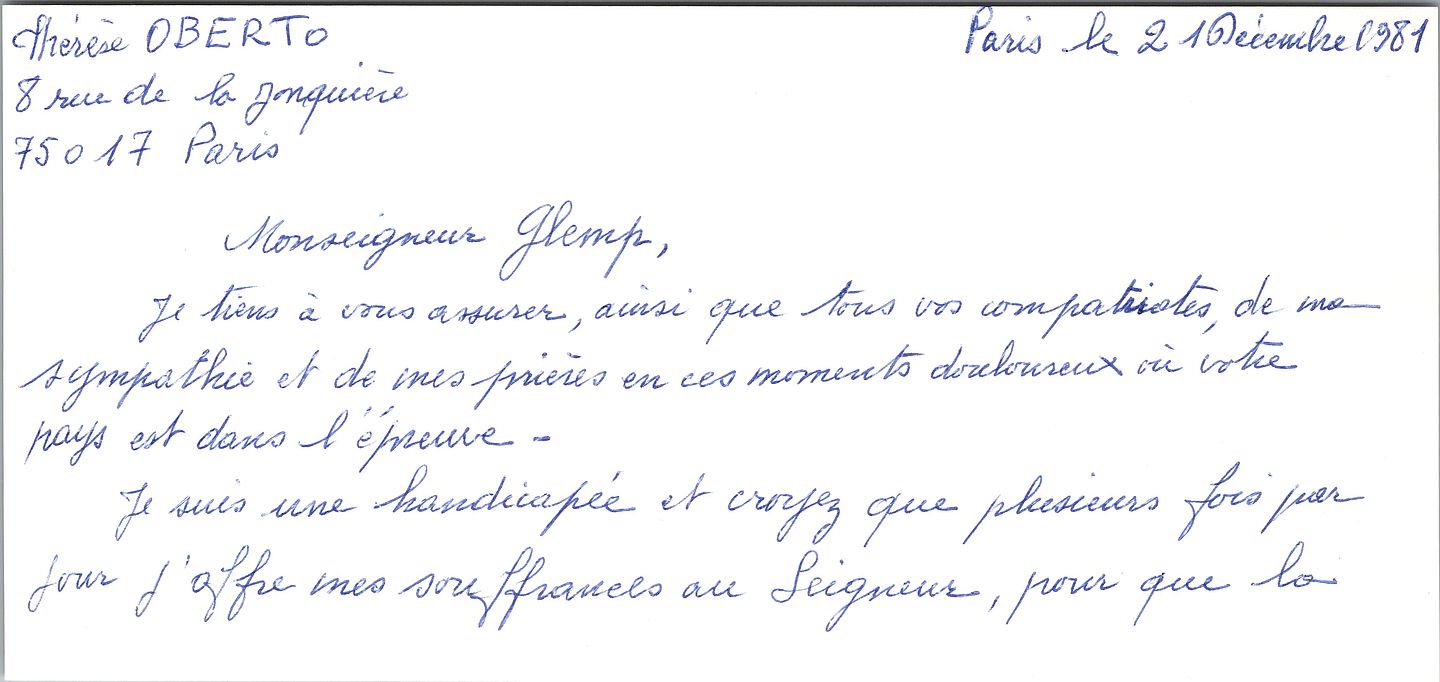 Thérèse OBERTO
Paris le 21 Décembre 1981
8 rue de la Jonquière
75017 Paris
Monseigneur Glemp,
Je tiens à vous assurer, ainsi que tous vos compatriotes, de ma
sympathie et de mes prières en ces moments douloureux où votre
pays est dans l'épreuve -
Je suis une handicapée et croyez que plusieurs fois par
jour j'offre mes souffrances au Seigneur, pour que la